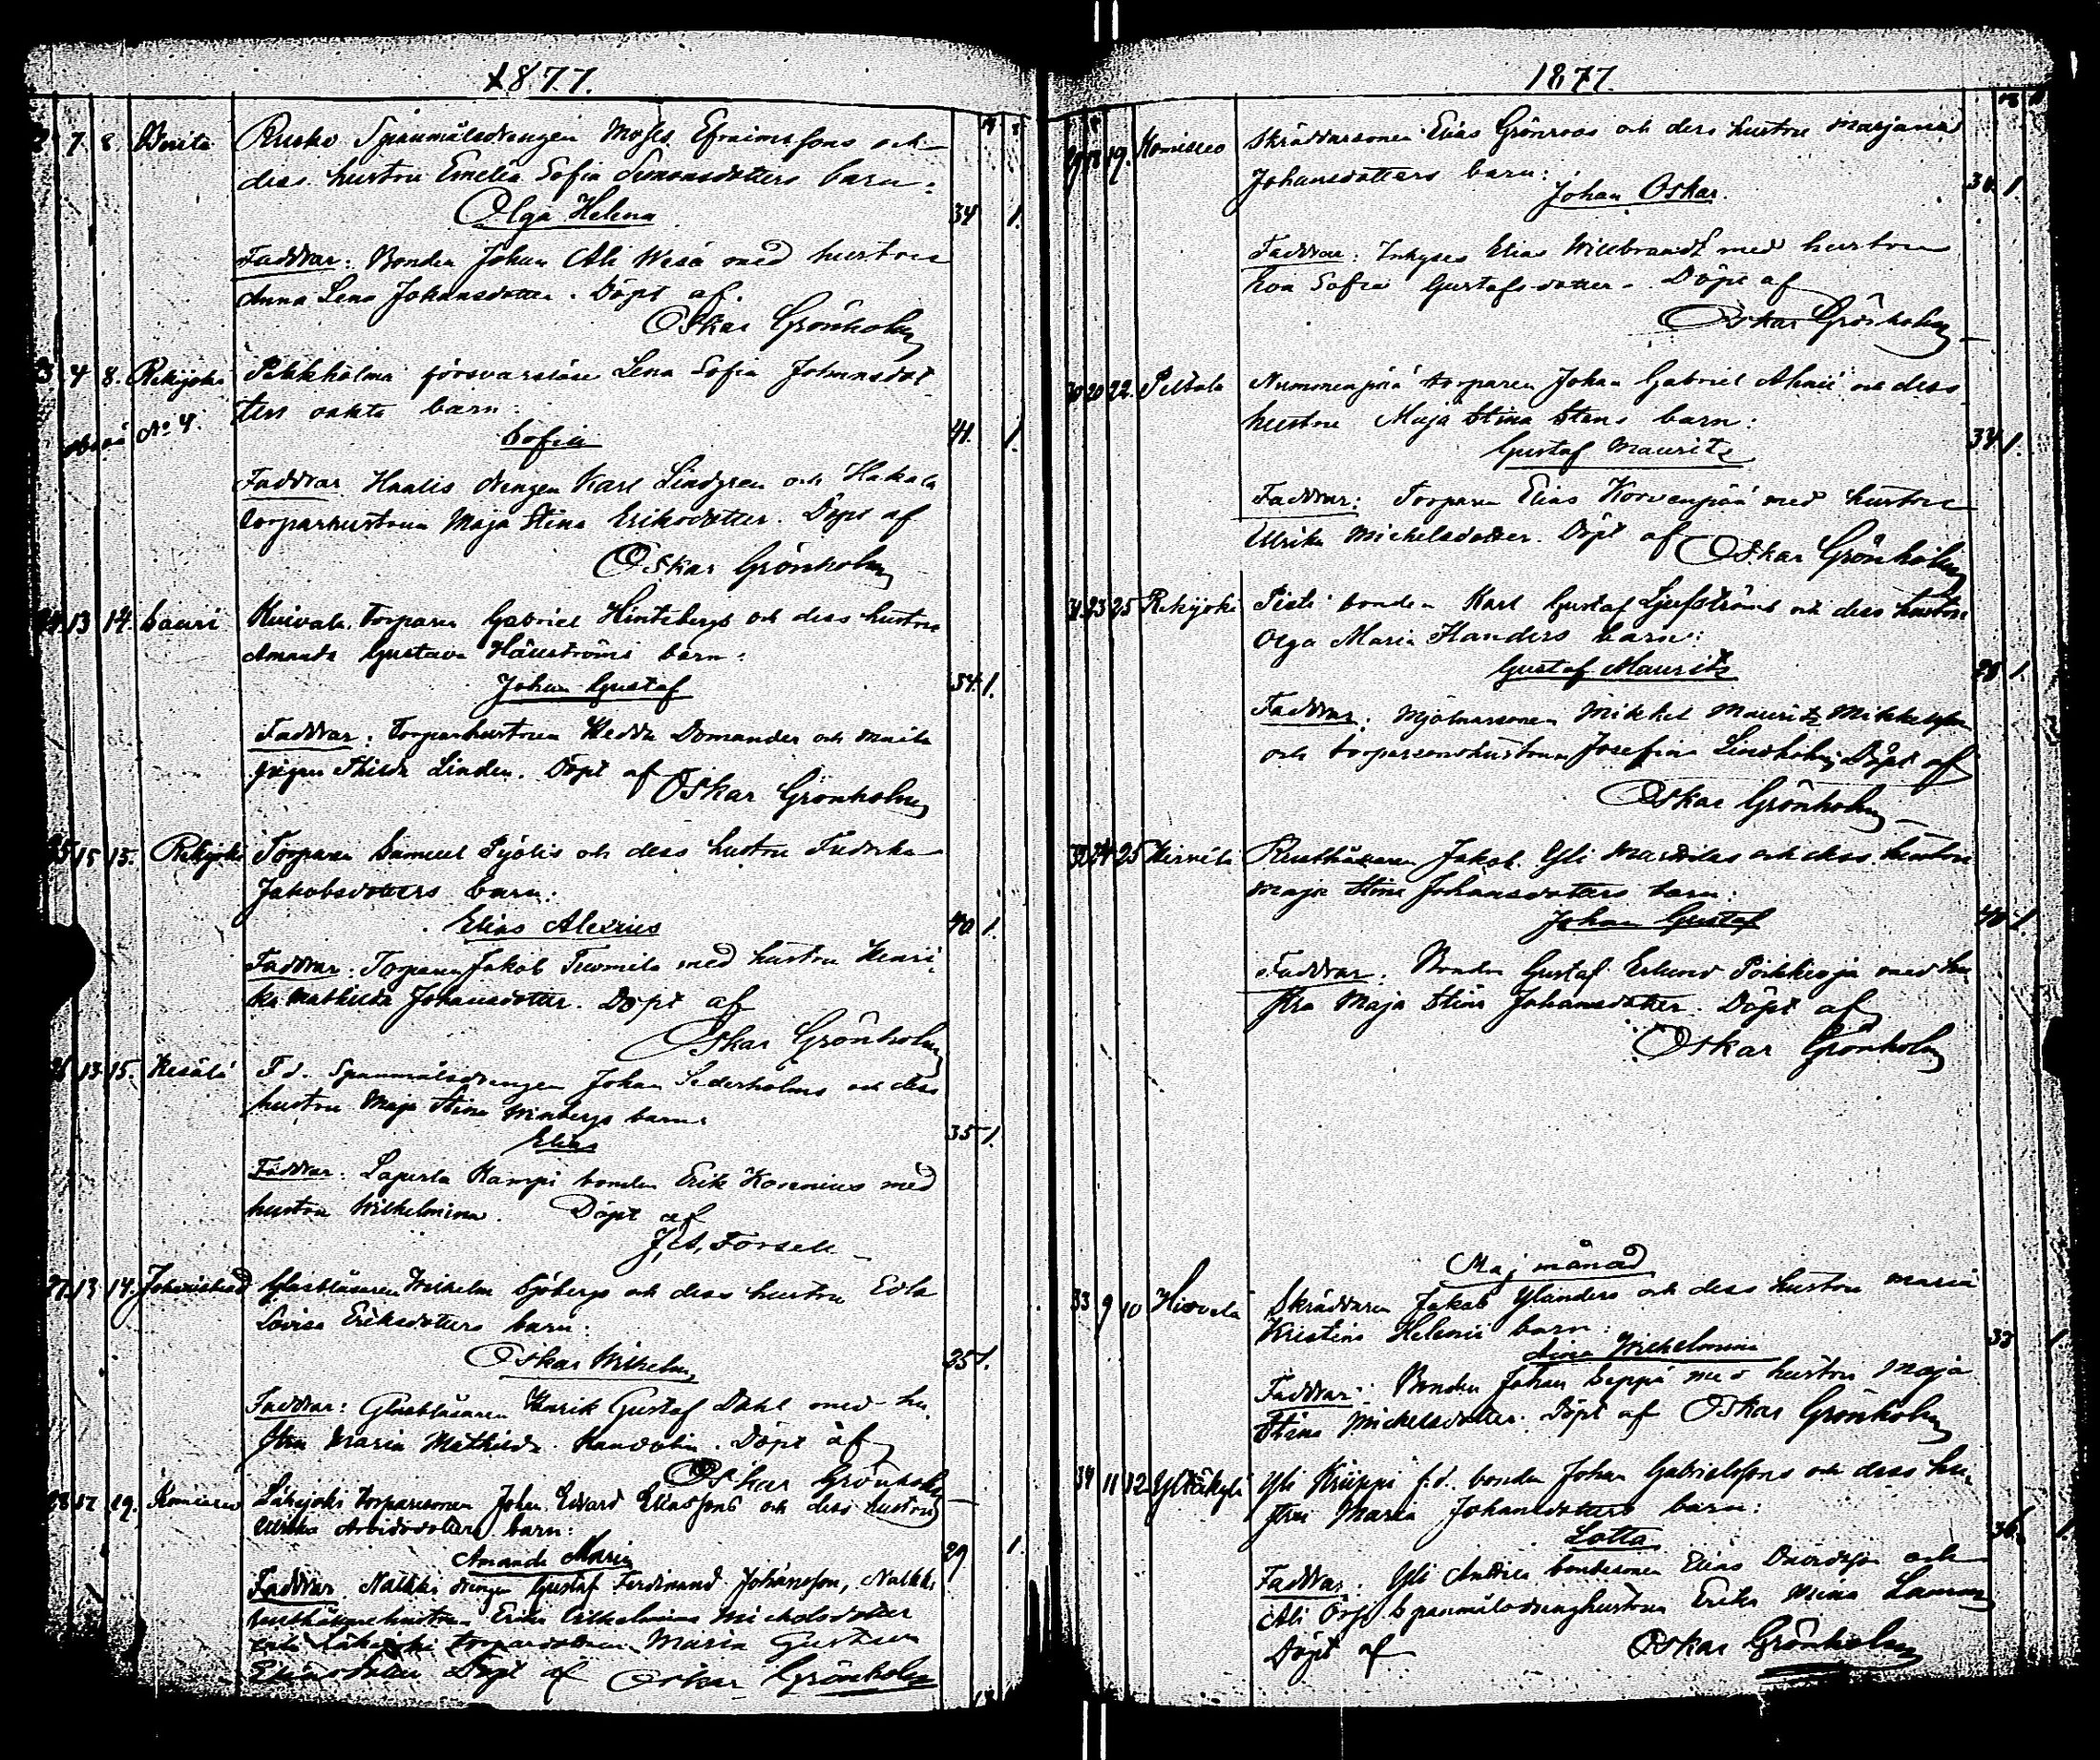 1877.
22 7. 8. Wesita Rusko Spanmålsdrengen Moses Efraimssons och
dess hustru Emelia Sofia Simonsdotters barn:
Olga Helena 34 1.
Faddrar: Bonden Johan Ali Wesa med hustru
Anna Lena Johansdotter. Döpt af.
Oskar Grönholm
23 4 8. Rekijoki Pekkholma försvarslöse Lena Sofia Johansdot
No 4. ters oäkta barn:
Sofia 41. 1.
Faddrar Haalis drengen Karl Lindgren och Hakala
torparhustrun Maja Stina Eriksdotter. Döpt af
Oskar Grönholm
24 13 14. Sauri torparen Gabriel Hintzbergs och dess hustru
Amanda Gustava barn:
Johan Gustaf 34 1.
Faddrar: Torparhustrun Hedda Domander och
pigan Thilda Linden. Döpt af
Oskar Grönholm
25 15 15. Rekijoki Torparen Samuel Pyölis och dess hustru Fredrika
Jakobsdotters barn:
Elias Alexius 40 1.
Faddrar: Torparen Jakob Tuomila med hustru Henri
ka Mathilda Johansdotter. Döpt af
Oskar Grönholm
26 13 15. Kesälä F.d. Spanmålsdrengen Johan Sederholms och dess
hustru Maja Stina Winbergs barn:
Elias 35 1.
Faddrar: Laperla Kampi bonden Erik Korenius med
hustru Wilhelmina. Döpt af
J. A. Forsell
27 13 14. Johannislund Glasblåsaren Wilhelm Sjöbergs och dess hustru Edla
Lovisa Eriksdotters barn:
Oskar Wilhelm 25 1.
Faddrar: Glasblåsaren Henrik Gustaf Dahl med hu
stru Maria Mathilda Kandolin. Döpt af
Oskar Grönholm
28 17 19. Komisuo Lähijoki torparesonen Johan Edvard Eliassons och dess hustru
Ulrika Arvidsdotters barn:
Amanda Maria 29 1.
Faddrar Nälkki drengen Gustaf Ferdinand Johansson, Nälkki
rusthållarehustrun Erika Wilhelmina Michelsdotter
och Lähijoki torparedottren Maria Gustava
Eliasdotter Döpt af Oskar Grönholm
1877.
29 18 19. Komisuo Skräddarsonen Elias Grönroos och dess hustru Marjana
Johansdotters barn:
Johan Oskar. 34. 1.
Faddrar: Inhyses Elias Willbrandt med hustru
Eva Sofia Gustafsdotter. Döpt af
Oskar Grönholm
30 20 22. Peltola Nummenpää torparen Johan Gabriel och dess
hustru Maja Stina Stens barn:
Gustaf Mauritz 34 1.
Faddrar: Torparen Elias Korvenpää med hustru
Ulrika Michelsdotter. Döpt af
Oskar Grönholm
31 23 25 Rekijoki Pieti bonden Karl Gustaf Ljufströms och dess hustru
Olga Maria Flanders barn:
Gustaf Mauritz 28 1.
Faddrar: Mjölnarsonen Mikkel Mauritz Mikkelsson
och torparsonshustrun Josefina Lindholm Döpt af
Oskar Grönholm
32 24 25 Hirvelä Rusthållaren Jakob Yli Marttilas och dess hustru
Maja Stina Johansdotters barn:
Johan Gustaf 40 1.
Faddrar: Bonden Gustaf Erlund Poikkioja med hu
stru Maja Stina Johansdotter. Döpt af
Oskar Grönholm
Maj månad
33 9 10 Hirvelä Skräddaren Jakob Ylanders och dess hustru Maria
Kristina Helenii barn:
Aina Wilhelmina 33 1.
Faddrar: Bonden Johan Seppä med hustru Maja
Stina Michelsdotter. Döpt af Oskar Grönholm
34 11 12 Ylistäkylä Yli Krüppi f.d. bonden Johan Gabrielssons och dess hu
stru Maria Johansdotters barn:
Lotta 36. 1.
Faddrar: Yli Anttila bondesonen Elias Davidsson och
Ali Örji Spanmålsdrenghustrun Erika Mina
Döpt af Oskar Grönholm